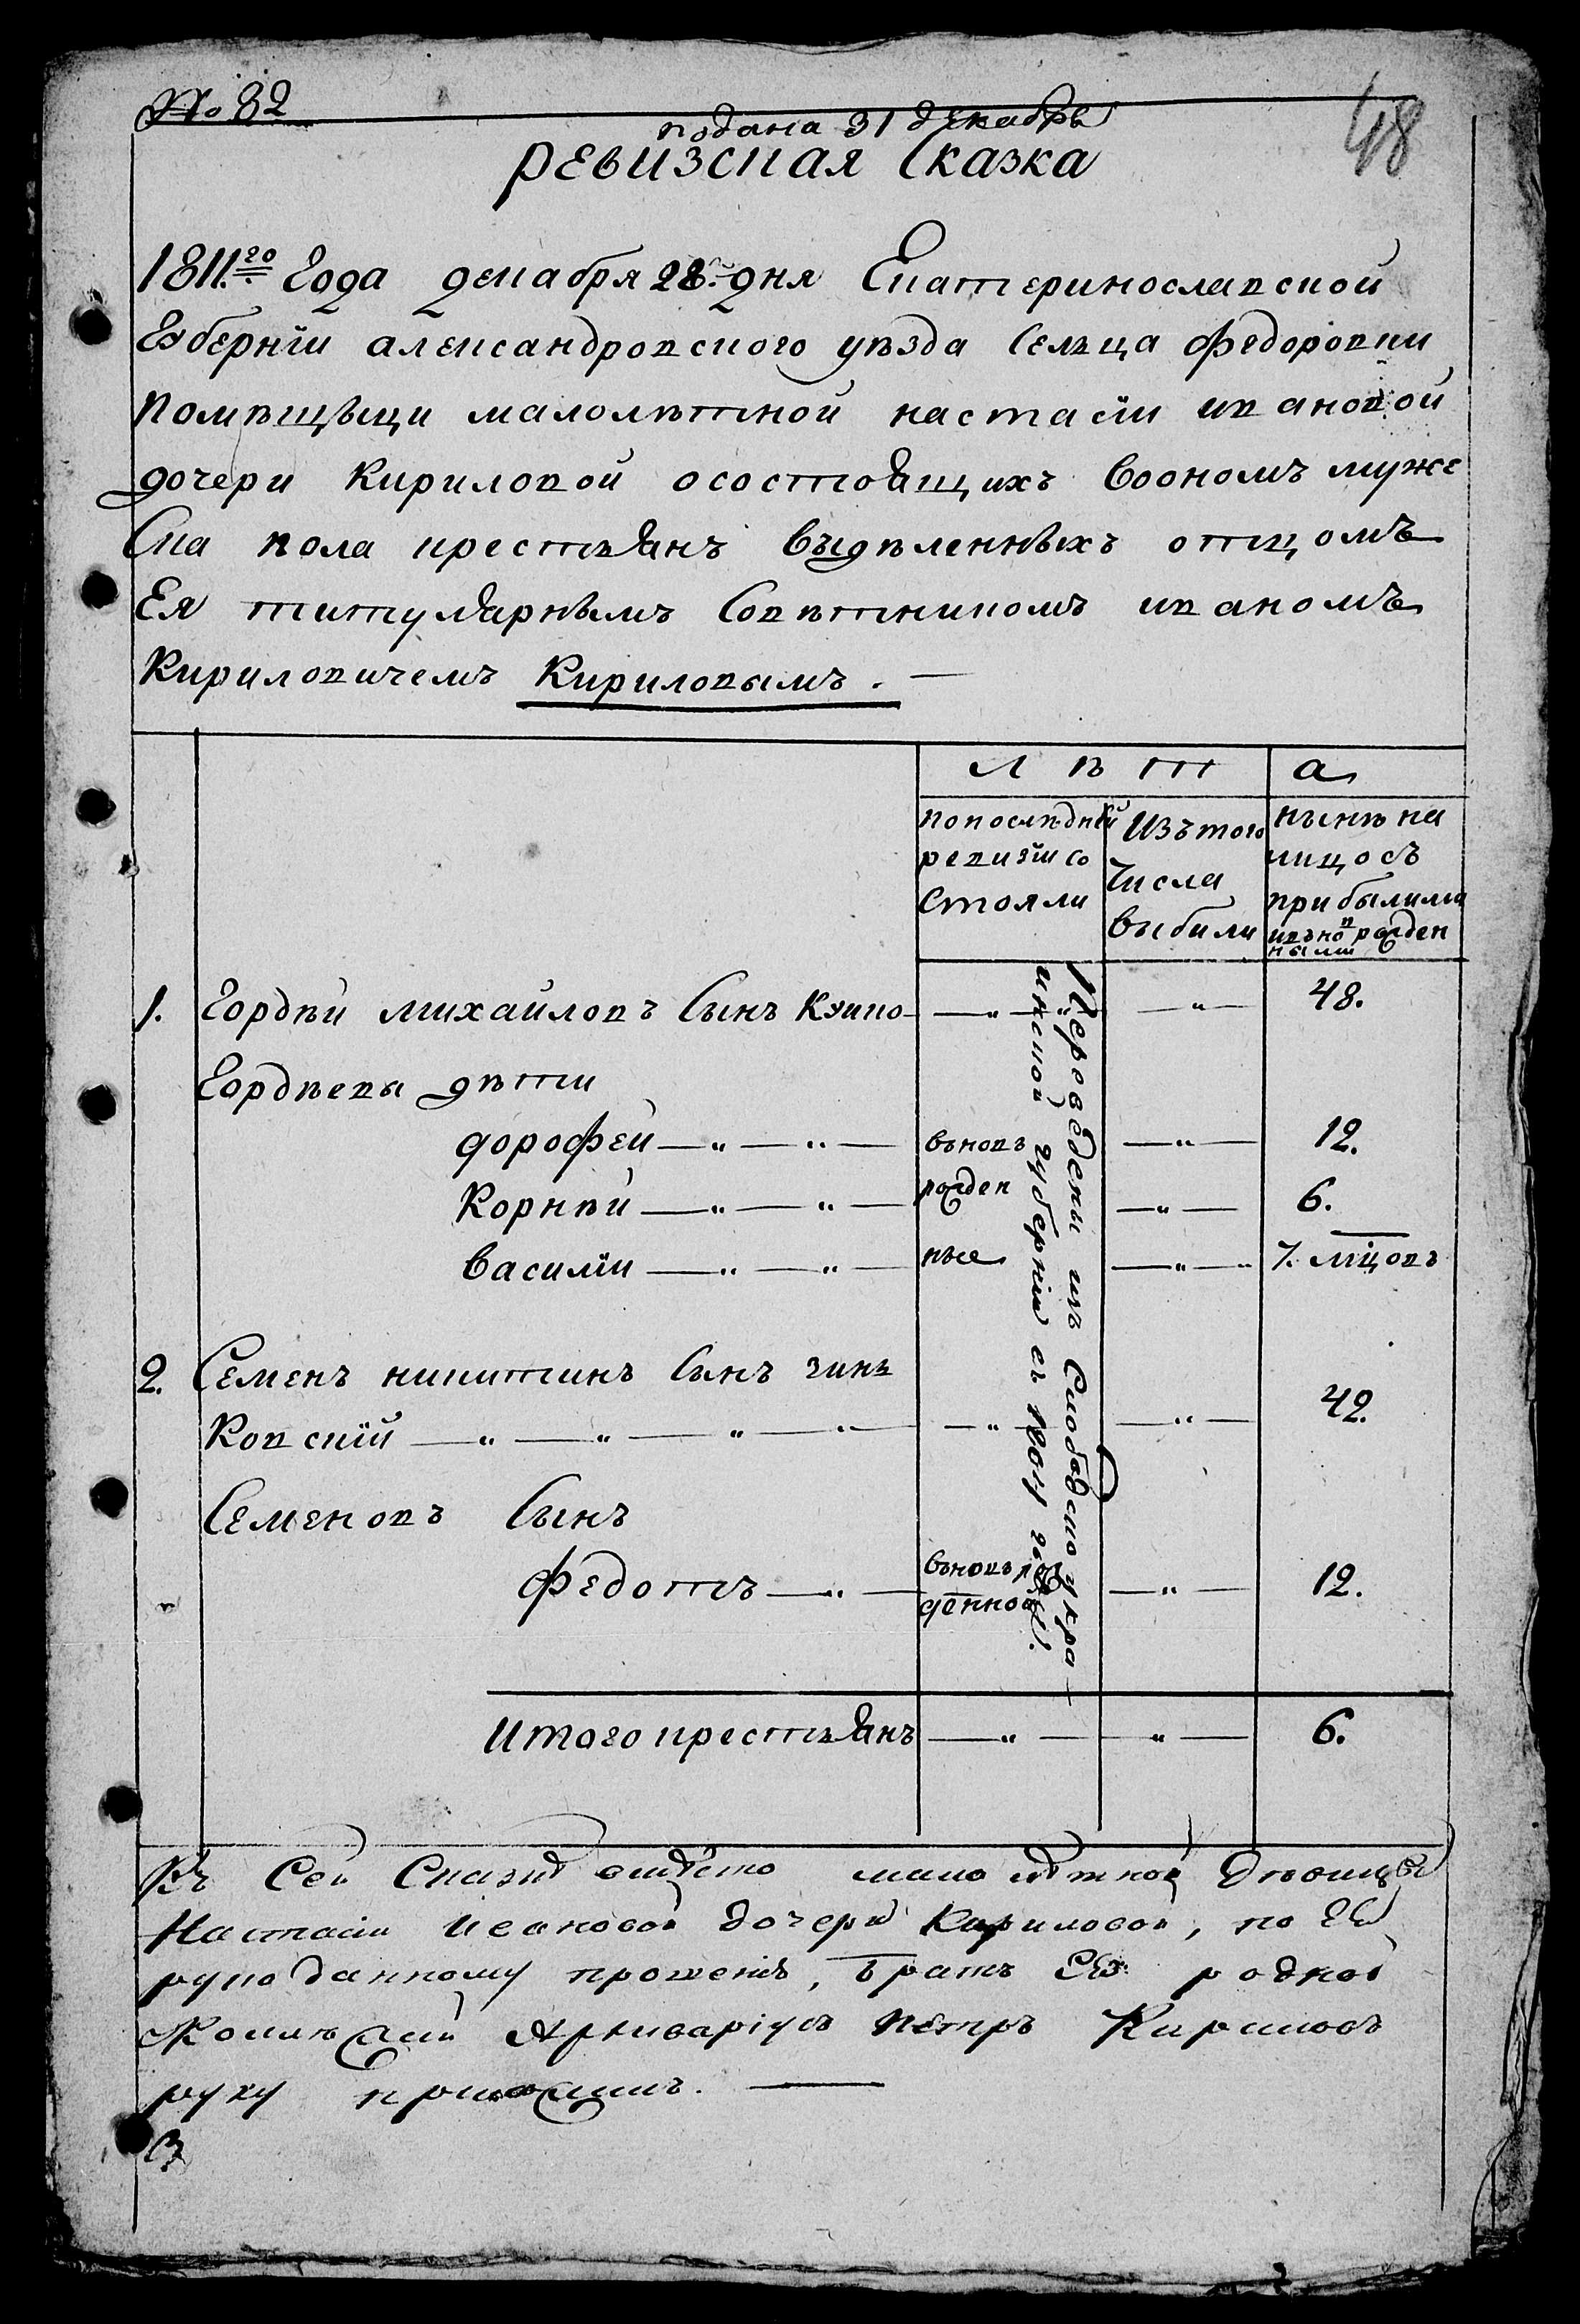 № 82
48
подана 31 декабря
Ревизская Сказка
1811.го Года декабря 28. дня Екатеринославской
Губернїи александровского уѣзда Сельца Федоровки
помѣщьци малолѣтной настасїи ивановой
дочери Кириловой осостоящихъ Воономъ муже
Ска пола крестьянъ Выдѣленныхъ отцомъ
Ея титулярнымъ Совѣтникомъ иваномъ
Кириловичемъ Кириловымъ. —
Л ѣ т а
попослѣдней ревизїи состояли
Изътого Числа Выбыли
нынѣ на лицо съ прибылими ивъновь рожденными
1. Гордѣй михайловъ Сынъ — „ — „ — „ — 48.
Гордѣевы дѣти
дорофей — „ — „ — вновъ — „ — 12.
Корнѣй — „ — „ — рожден — „ — 6.
Василїй — „ — „ — ные — „ — 7. мцовъ
2. Семенъ никитинъ Сынъ зинь
Ковскїй — „ — „ — „ — „ — „ — „ — 42.
Семеновъ Сынъ
Федотъ — „ — вновърож — „ — 12.
денной
Переведены изъ Слободскоукра—
инской губернїи въ 1804 году.
Итого крестьянъ — „ — „ — 6.
Къ Сей Сказкѣ вмѣсто мало лѣтной Дѣвицы
Настасіи Ивановой дочери Кириловой, по Ея
рукоданному прошенію, братъ Ея родной
Колежскій Архиваріусъ Петръ Кириловъ
руку приложилъ. —